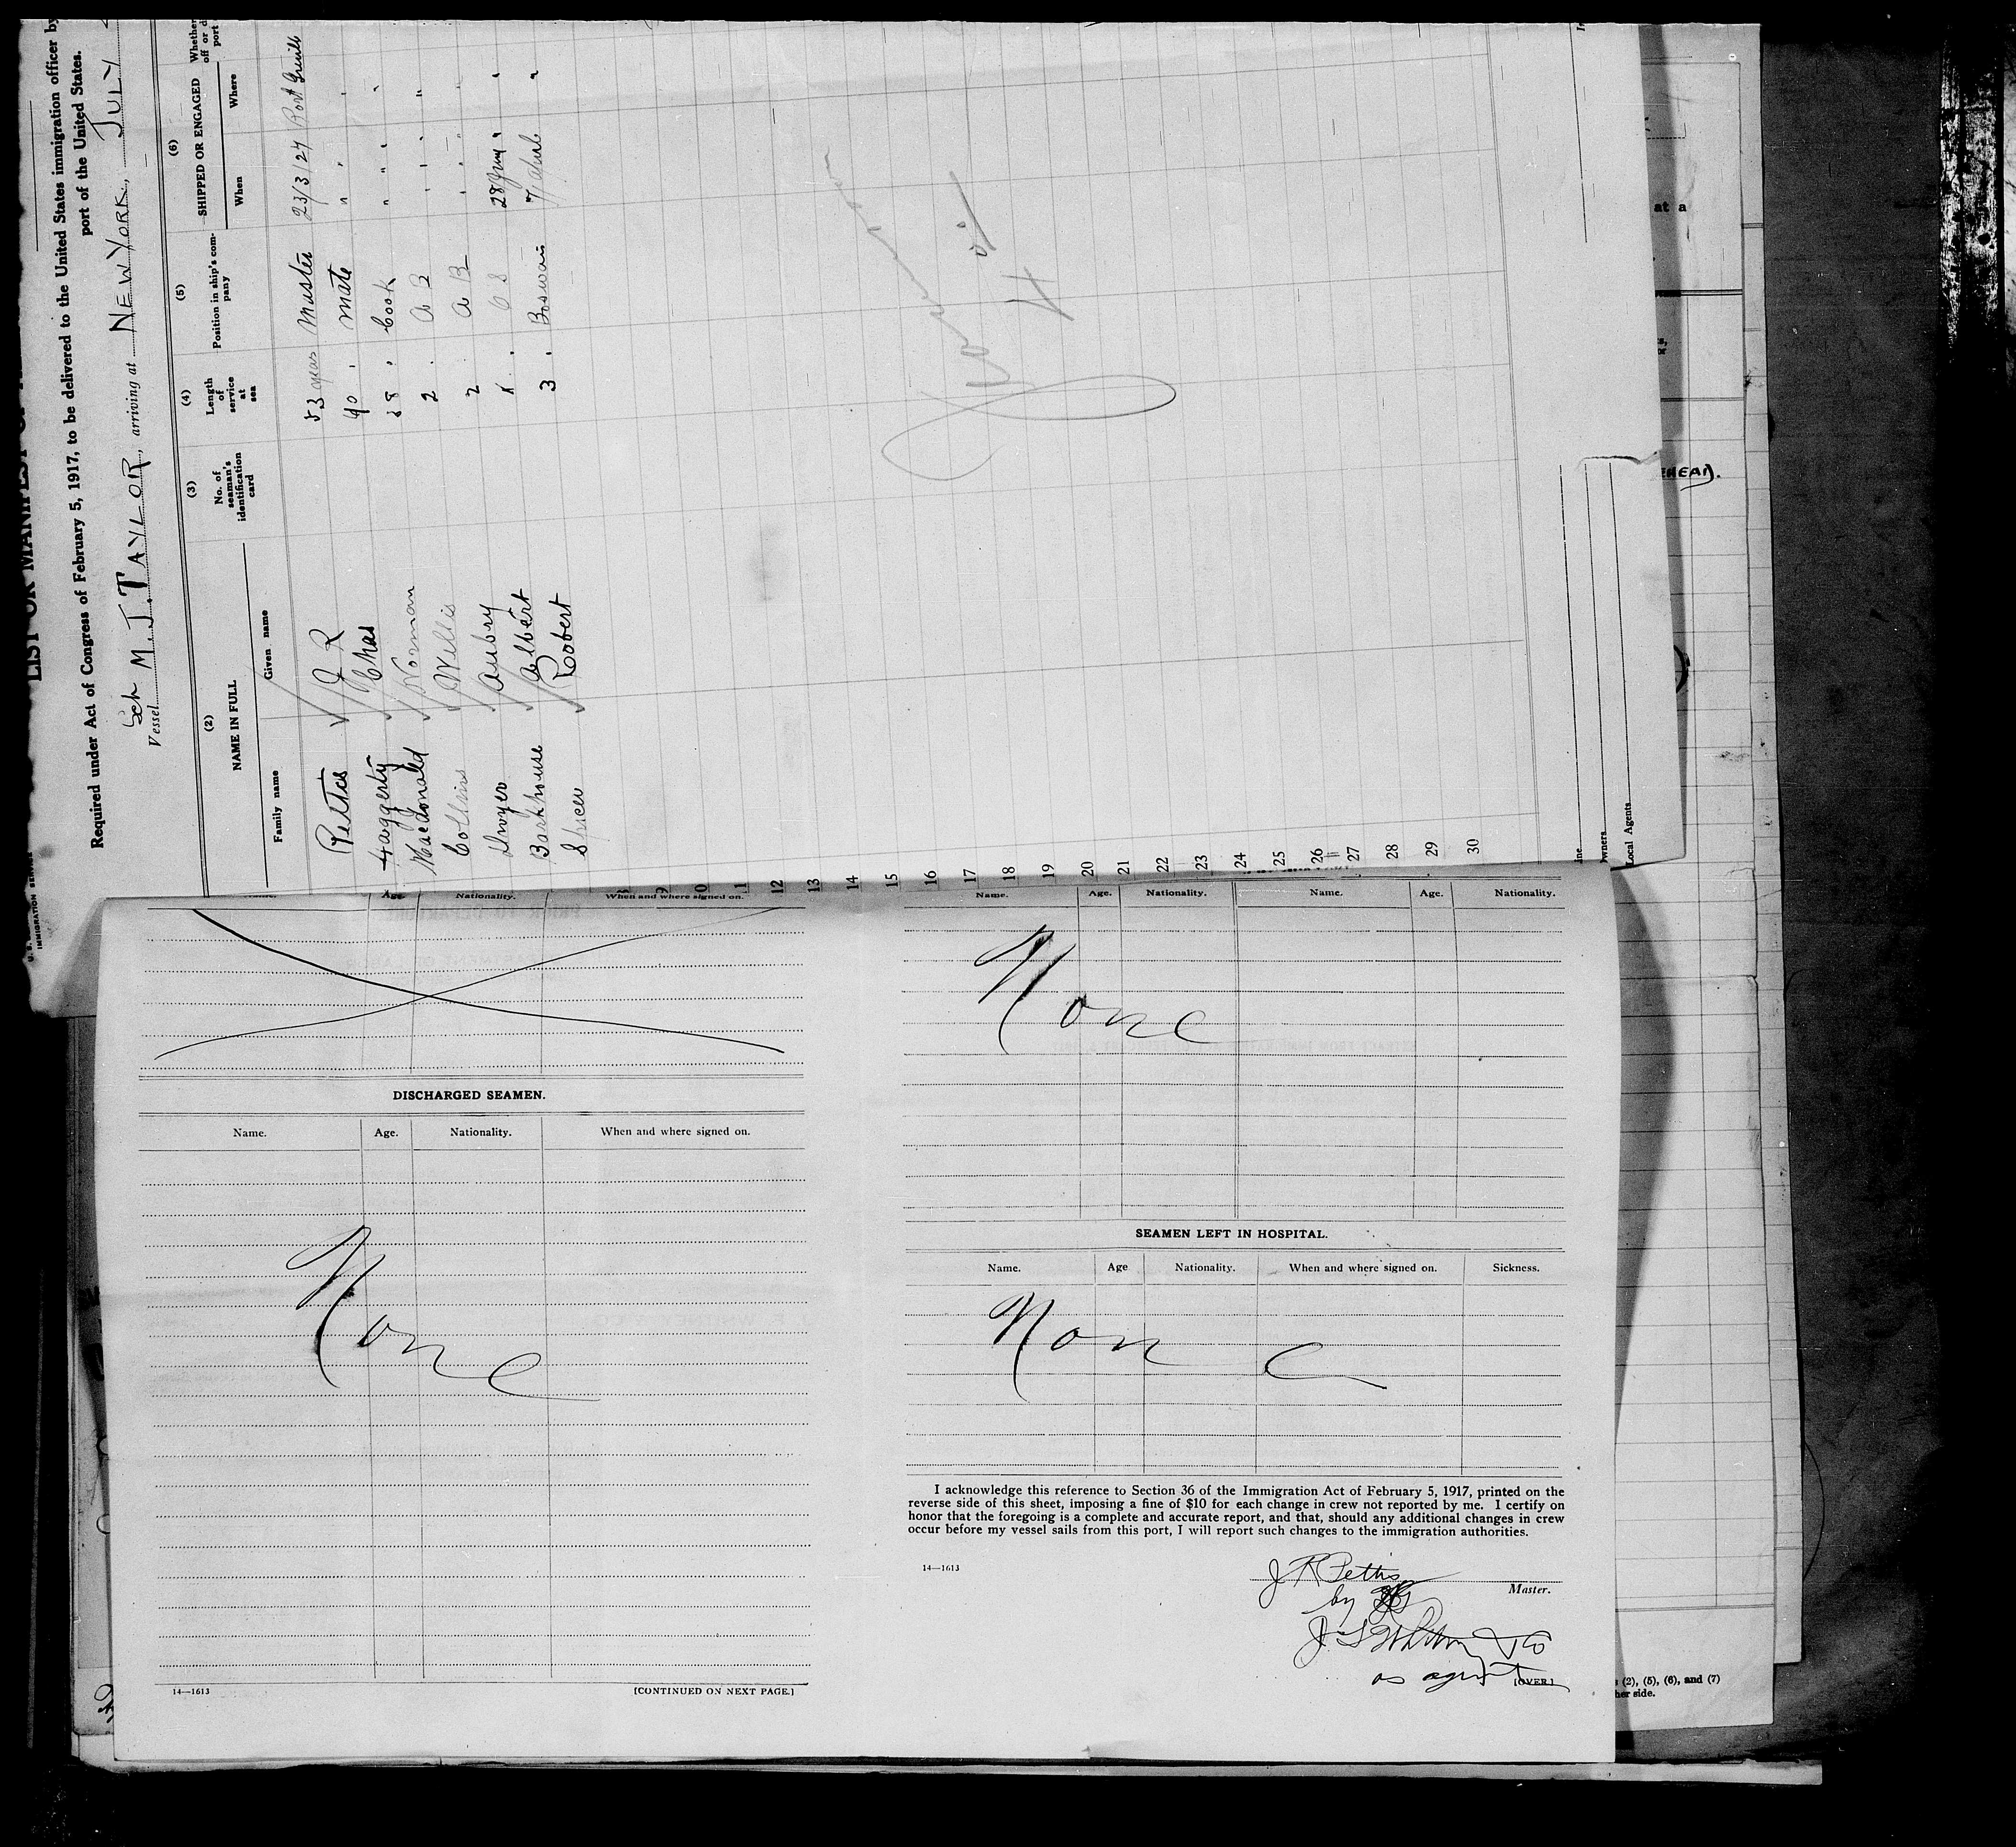 LIST OR MANIFEST OF
Required under Act of Congress of February 5, 1917, to be delivered to the United States immigration officer by
port of the United States.
Vessel Sch M. J. TAYLOR, arriving at NEW YORK, JULY
(2) (3) (4) (5) (6)
NAME IN FULL No. of seaman's identification card Length of service at sea Position in ship's company SHIPPED OR ENGAGED Whether
Family name Given name When Where
Pettis J R 53 years Master 23/3/24 Port Greville
Haggerty Chas 40 " Mate " " "
Macdonald Norman 38 " Cook " " "
Collins Willis 2 " A B " " "
Dwyer Aubry 2 A B " " "
Barkhouse Albert " O S 28 " "
Spicer Robert 3 " Boswain 7/ April "
12
13
14
15
16
17
18
19
20
21
22
23
24
25
26
27
28
29
30
Local Agents
IMMIGRATION SERVICE
Age. Nationality. When and where signed on.
DISCHARGED SEAMEN.
Name. Age. Nationality. When and where signed on.
None
14—1613 [CONTINUED ON NEXT PAGE.]
Name. Age. Nationality. Name. Age. Nationality.
None
SEAMEN LEFT IN HOSPITAL.
Name. Age Nationality. When and where signed on. Sickness.
None
I acknowledge this reference to Section 36 of the Immigration Act of February 5, 1917, printed on the
reverse side of this sheet, imposing a fine of $10 for each change in crew not reported by me. I certify on
honor that the foregoing is a complete and accurate report, and that, should any additional changes in crew
occur before my vessel sails from this port, I will report such changes to the immigration authorities.
14—1613
J R Pettis
Master.
by
as agent
[OVER]
at a
EHEAD.
(2), (5), (6), and (7)
her side.